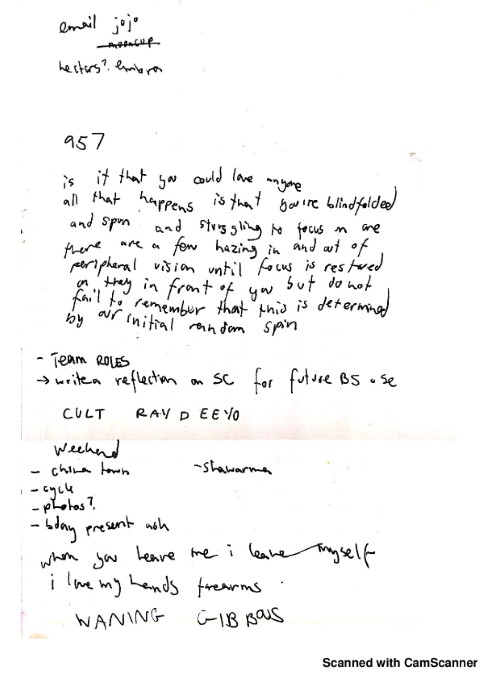 email jojo
mooncup
hectors? embra
957
is it that you could love anyone
all that happens is that you're blindfolded
and spun and struggling to focus on one
there are a few hazing in and out of
peripheral vision until focus is restored
on they in front of you but do not
fail to remember that this is determined
by our initial random spin
- TEAM ROLES
→ write a reflection on SC for future BS use
CULT RAY D EEYO
Weekend
- china town - shawarma
- cycle
- photos?
- bday present
when you leave me i leave myself
i love my hands firearms
WANING GIBBOUS
Scanned with CamScanner